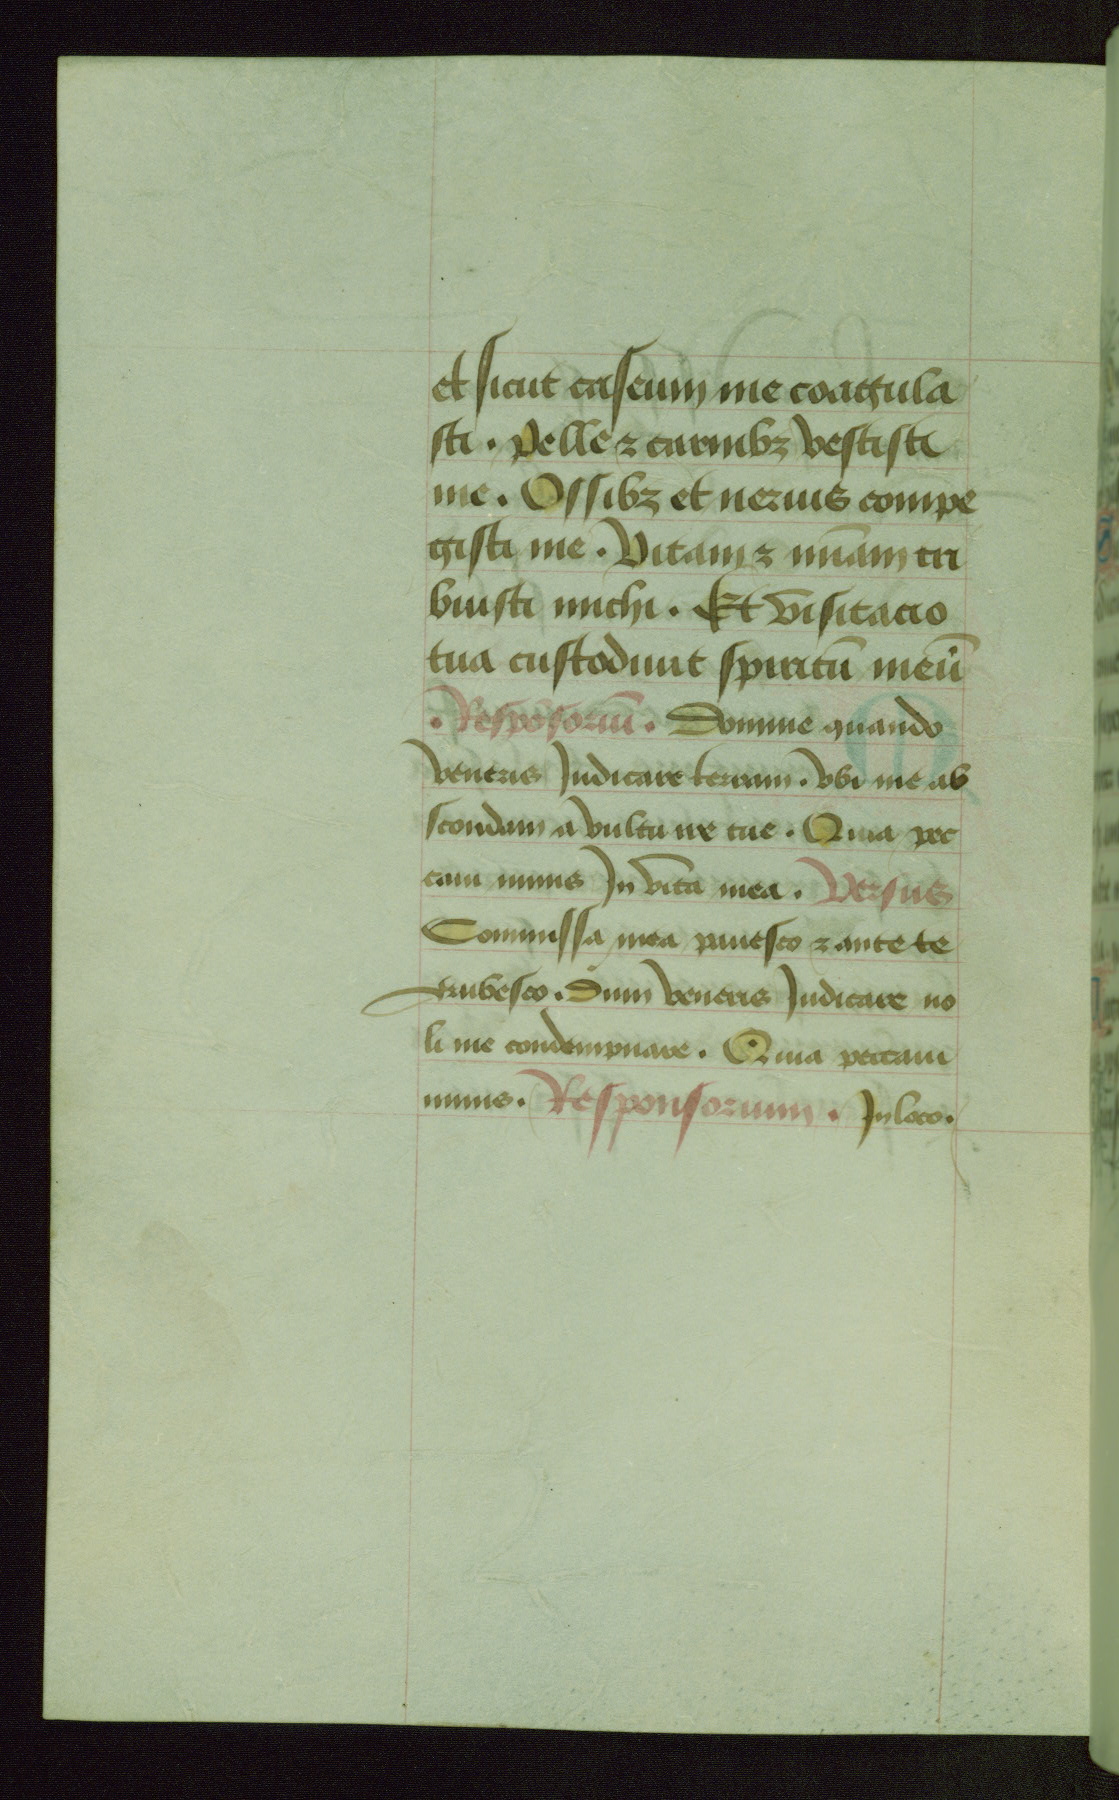 et sicut caseum me coagula
sti . pelle ⁊ carnibꝫ vestisti
me . Ossibꝫ et neruis compe
gisti me . Vitam ⁊ mīam tri
buisti michi . Et visitacio
tua custodiuit spiritū meū
. Respōsoriū . Domine quando
veneris Judicare terram . vbi me ab
scondam a vultu ire tue . Quia pec
caui nimis Jn vita mea . Versus
Commissa mea pauesco ⁊ ante te
erubesco . Dum veneris Judicare no
li me condempnare . Quia peccaui
nimis . Responsorium . Jn loco .